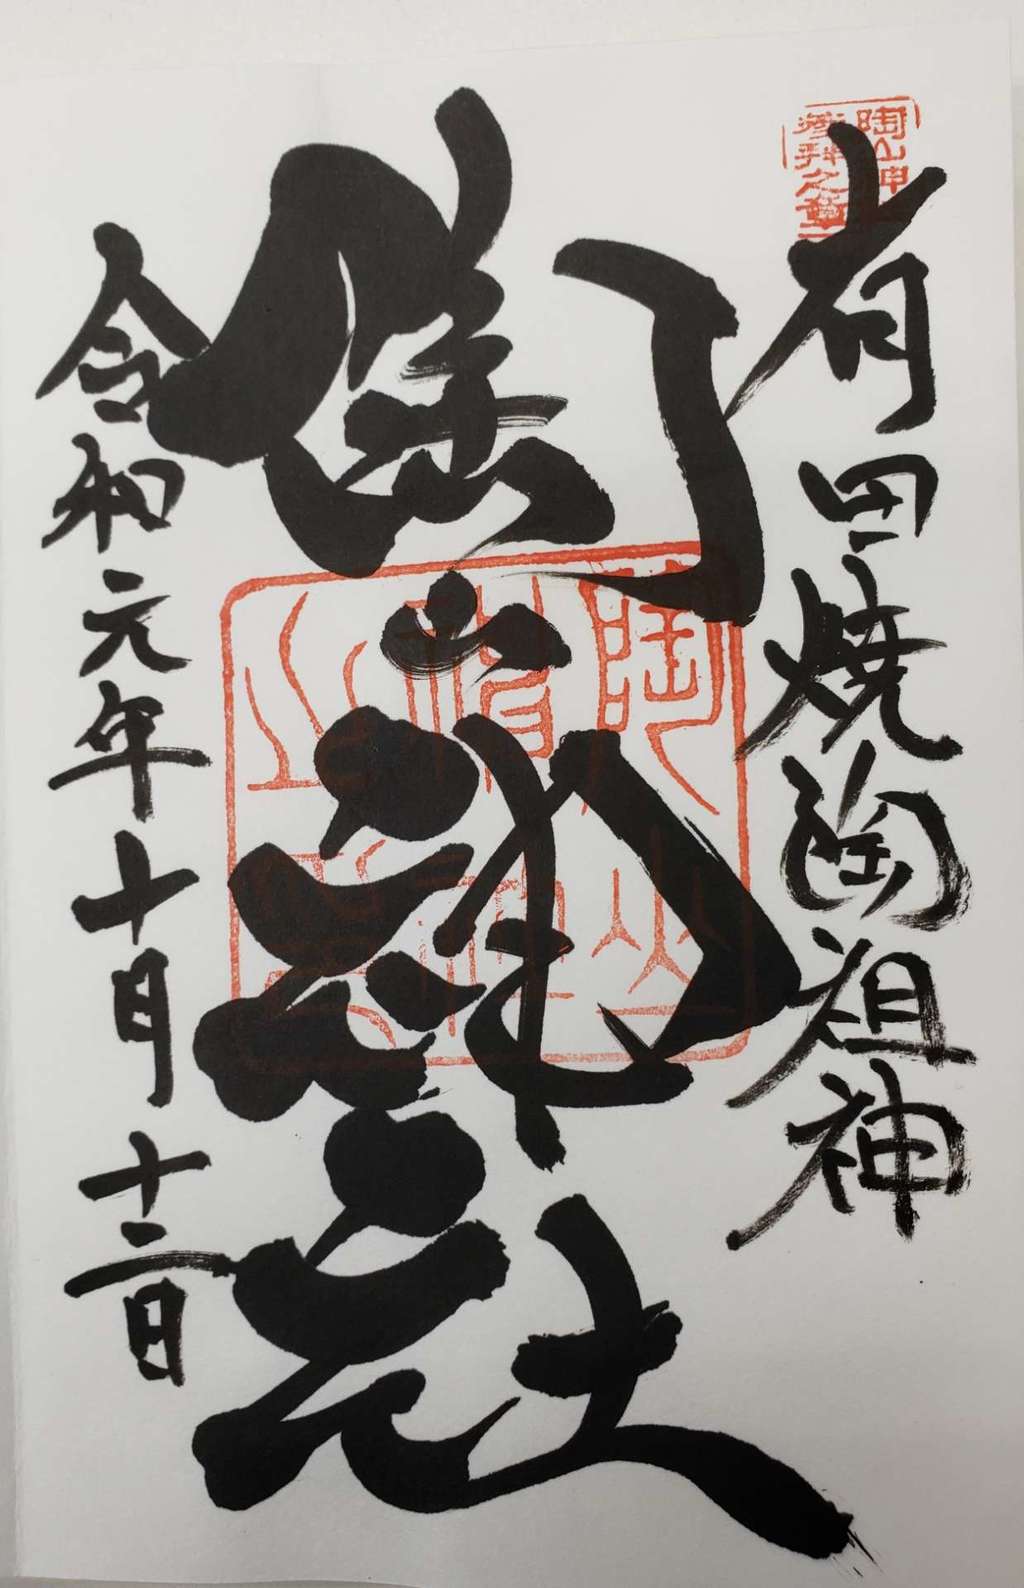 有田焼陶祖神
陶山神社
令和元年十月十二日
陶山神社
参拝之章